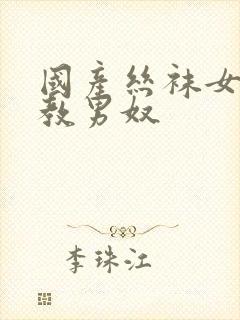 國產絲袜女
教男奴
李珠江